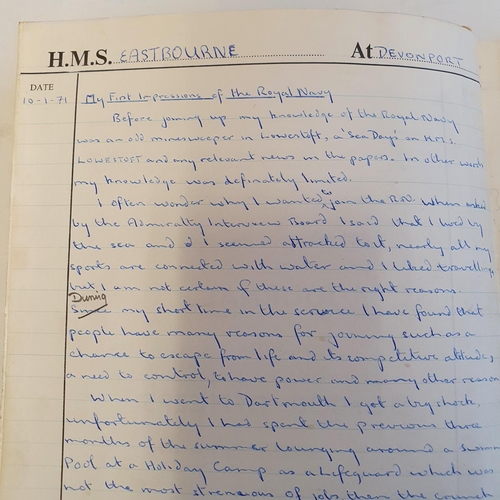 H.M.S. EASTBOURNE At DEVONPORT
DATE
10-1-71 My First Impressions of the Royal Navy
Before joining up my knowledge of the Royal Navy
was an old minesweeper in Lowestoft, a 'Sea Day' on H.M.S.
LOWESTOFT and any relevant news in the papers. In other words
my knowledge was definately limited.
I often wonder why I wanted to join the R.N. When asked
by the Admiralty Interview Board I said that I lived by
the sea and I seemed attracted to it, nearly all my
sports are connected with water and I liked travelling
but, I am not certain if these are the right reasons.
During
Since my short time in the service I have found that
people have many reasons for joining such as a
chance to escape from life and its competitive attitude,
a need to control, to have power and many other reasons
When I went to Dartmouth I got a big shock,
unfortunately I had spent the previous three
months of the summer lounging around a swimm
Pool at a Holiday Camp as a lifeguard which was
not the most strenuous of jobs then the